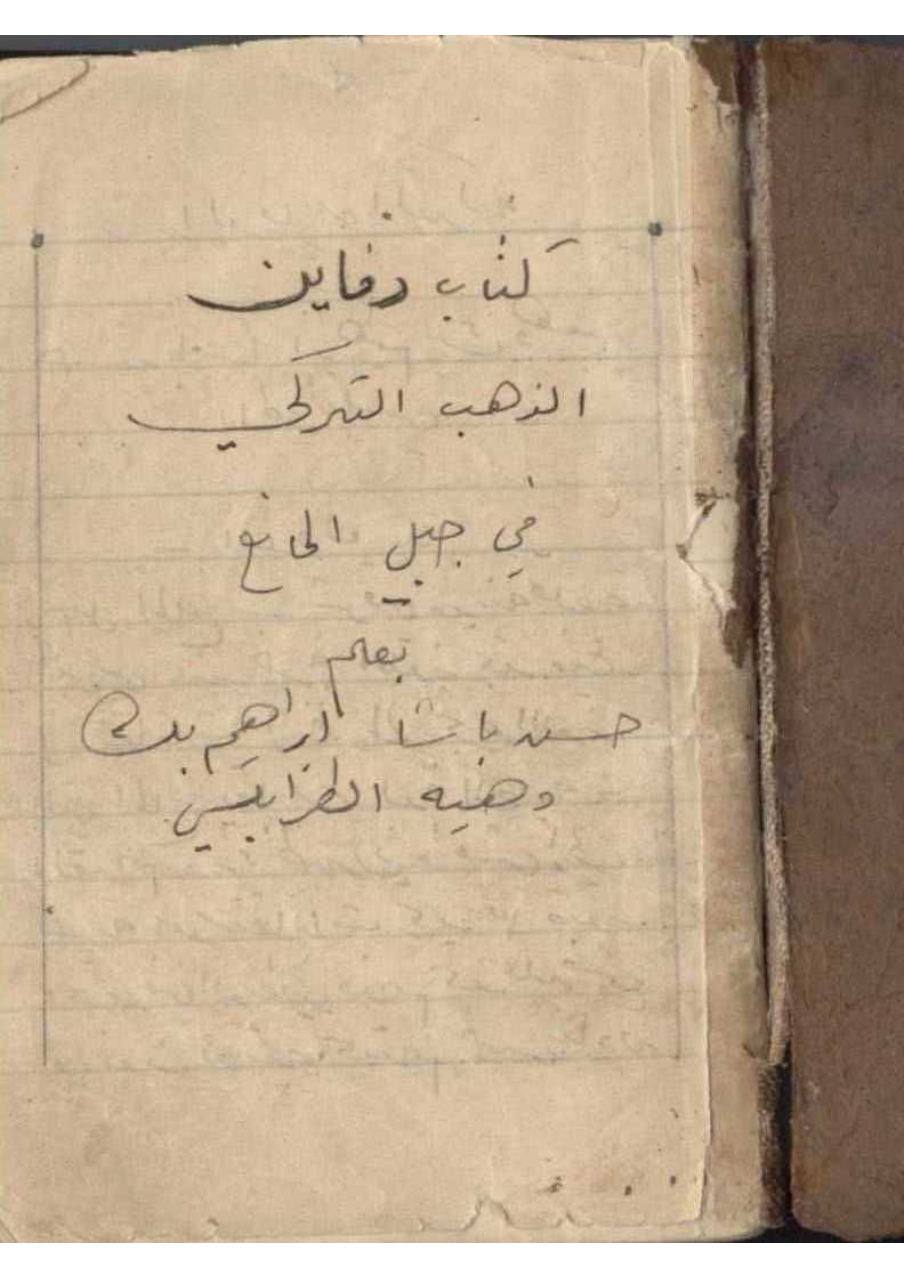 كتاب دفاين
الذهب التركي
في جبل المانع
بقلم
حسن باشا ابراهيم بك
وهبه الطرابلسي